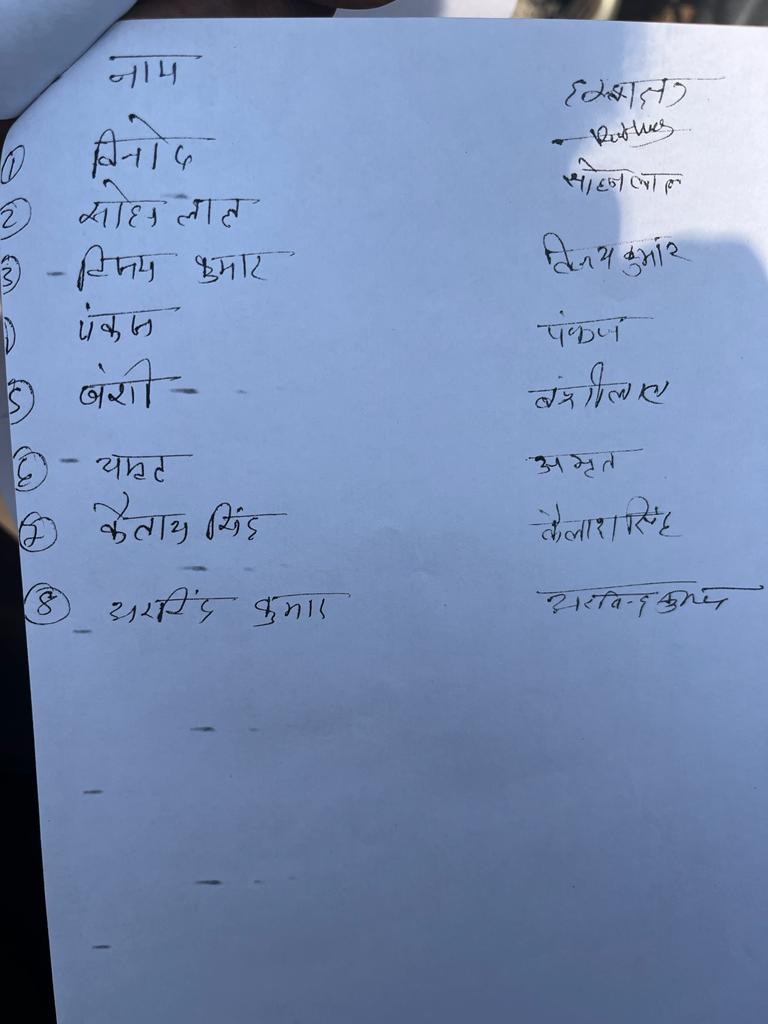 नाम हस्ताक्षर
① विनोद
② सोहन लाल सोहनलाल
③ - विजय कुमार विजय कुमार
पंकज पंकज
⑤ बंशी बंशीलाल
⑥ - अमृत
⑦ कैलाश सिंह कैलाश सिंह
⑧ अरविंद कुमार अरविन्द कुमार